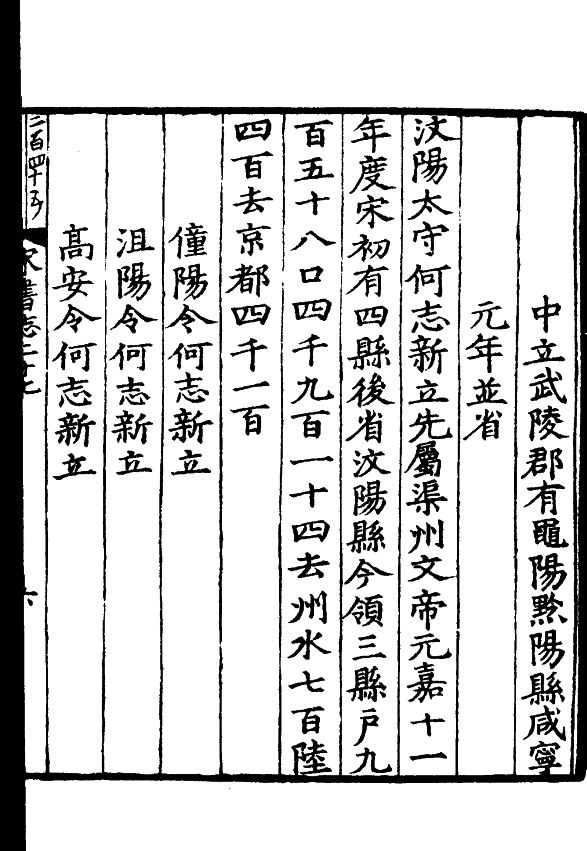 中立武陵郡有黽陽黔陽縣咸寧
元年並省
汶陽太守何志新立先屬渠州文帝元嘉十一
年度宋初有四縣後省汶陽縣今領三縣戶九
百五十八口四千九百一十四去州水七百陸
四百去京都四千一百
僮陽令何志新立
沮陽令何志新立
高安令何志新立
宋書志二十七
六